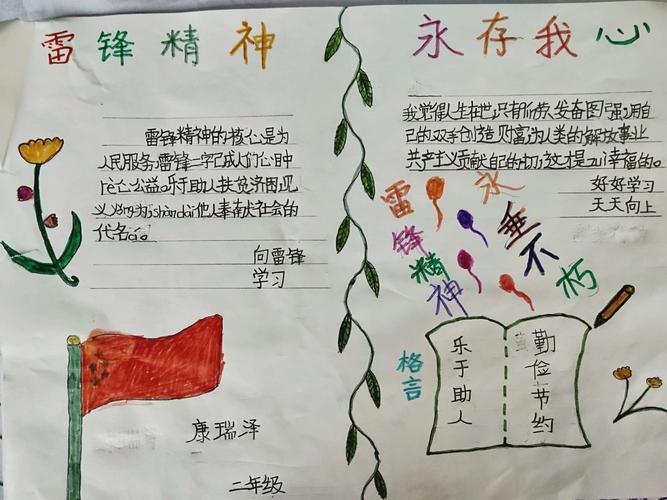 雷锋精神
永存我心
雷锋精神的核心是为
人民服务,雷锋一字已成人们心目中
热心公益。乐于助人扶贫济困,见
代名
向雷锋
学习
我觉得人生在世,只有勤劳、发奋图强,用自
己的双手创造财富,为人类的解放事业
共产主义贡献自己的
好好学习
天天向上
雷锋精神
永垂不朽
格言
乐于助人
勤俭节约
康瑞泽
二年级